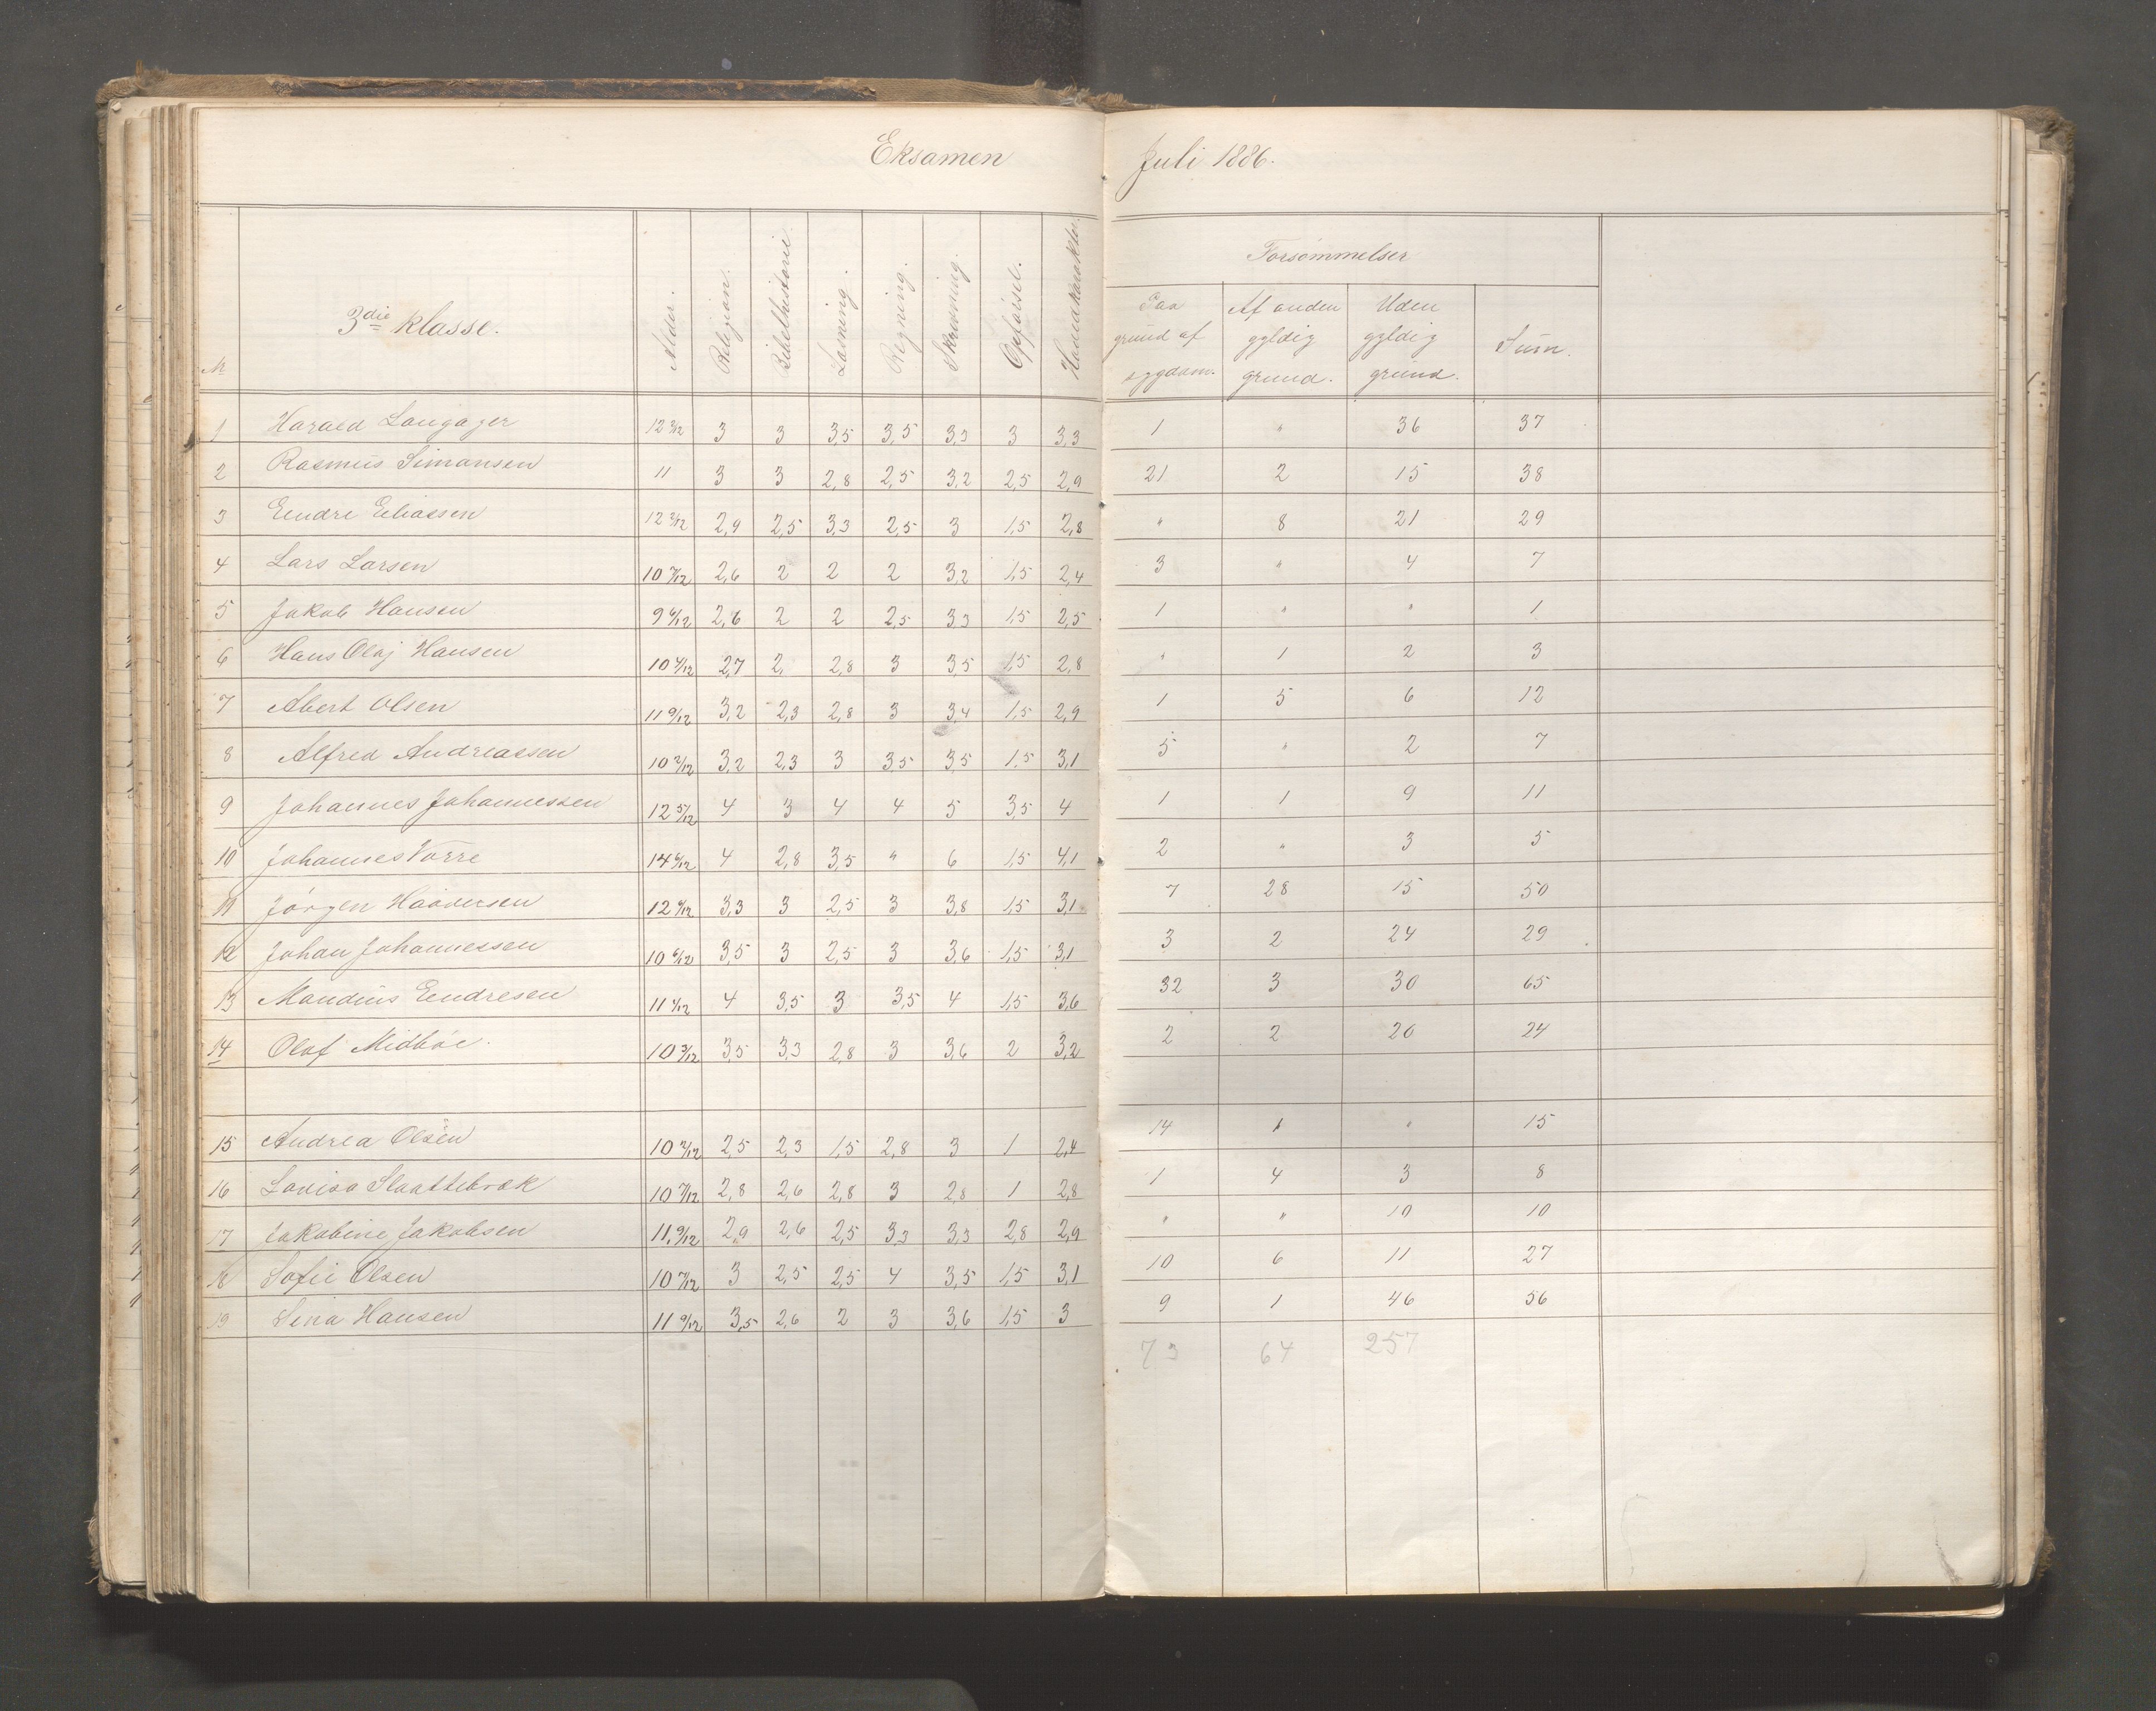 Eksamen Juli 1886.
Forsömmelser
№ 3die klasse. Alder. Religion. Bibelhistorie. Læsning. Regning. Skrivning. Opførsel. Hovedkarakter. Paa grund af sygdom. Af anden gyldig grund. Uden gyldig grund. Sum.
1 Harald Langager 12 3 3 3,5 3,5 3,3 3 3,3 1 " 36 37
2 Rasmus Simonsen 11 3 3 2,8 2,5 3,2 2,5 2,9 21 2 15 38
3 Eendre Eeliassen 12 2,9 2,5 3,3 2,5 3 1,5 2,8 " 8 21 29
4 Lars Larsen 10 2,6 2 2 2 3,2 1,5 2,4 3 " 4 7
5 Jakob Hansen 9 2,6 2 2 2,5 3,3 1,5 2,5 1 " " 1
6 Hans Olaj Hansen 10 2,7 2, 2,8 3 3,5 1,5 2,8 " 1 2 3
7 Abert Olsen 11 9/12 3,2 2,3 2,8 3 3,4 1,5 2,9 1 5 6 12
8 Alfred Andreassen 10 3,2 2,3 3 3,5 3,5 1,5 3,1 5 " 2 7
9 Johannes Johannessen 12 5/12 4 3 4 4 5 3,5 4 1 1 9 11
10 Johannes Vorre 14 6/12 4 2,8 3,5 " 6 1,5 4,1 2 " 3 5
11 Jörgen Haaversen 12 3,3 3 2,5 3 3,8 1,5 3,1 7 28 15 50
12 Johan Johannessen 10 6/12 3,5 3 2,5 3 3,6 1,5 3,1 3 2 24 29
13 Mandius Eendresen 11 4 3,5 3 3,5 4 1,5 3,6 32 3 30 65
14 Olaf Midböe. 10 3,5 3,3 2,8 3 3,6 2 3,2 2 2 20 24
15 Andrea Olsen 10 2,5 2,3 1,5 2,8 3 1 2,4 14 1 " 15
16 Lovisa Slaattebræk 10 2,8 2,6 2,8 3 2,8 1 2,8 1 4 3 8
17 Jakobine Jakobsen 11, 9/12 2,9 2,6 2,5 3,3 3,3 2,8 2,9 " " 10 10
18 Sofie Olsen 10 3 2,5 2,5 4 3,5 1,5 3,1 10 6 11 27
19 Sina Hansen 11 9/12 3,5 2,6 2 3 3,6 1,5 3 9 1 46 56
73 64 257